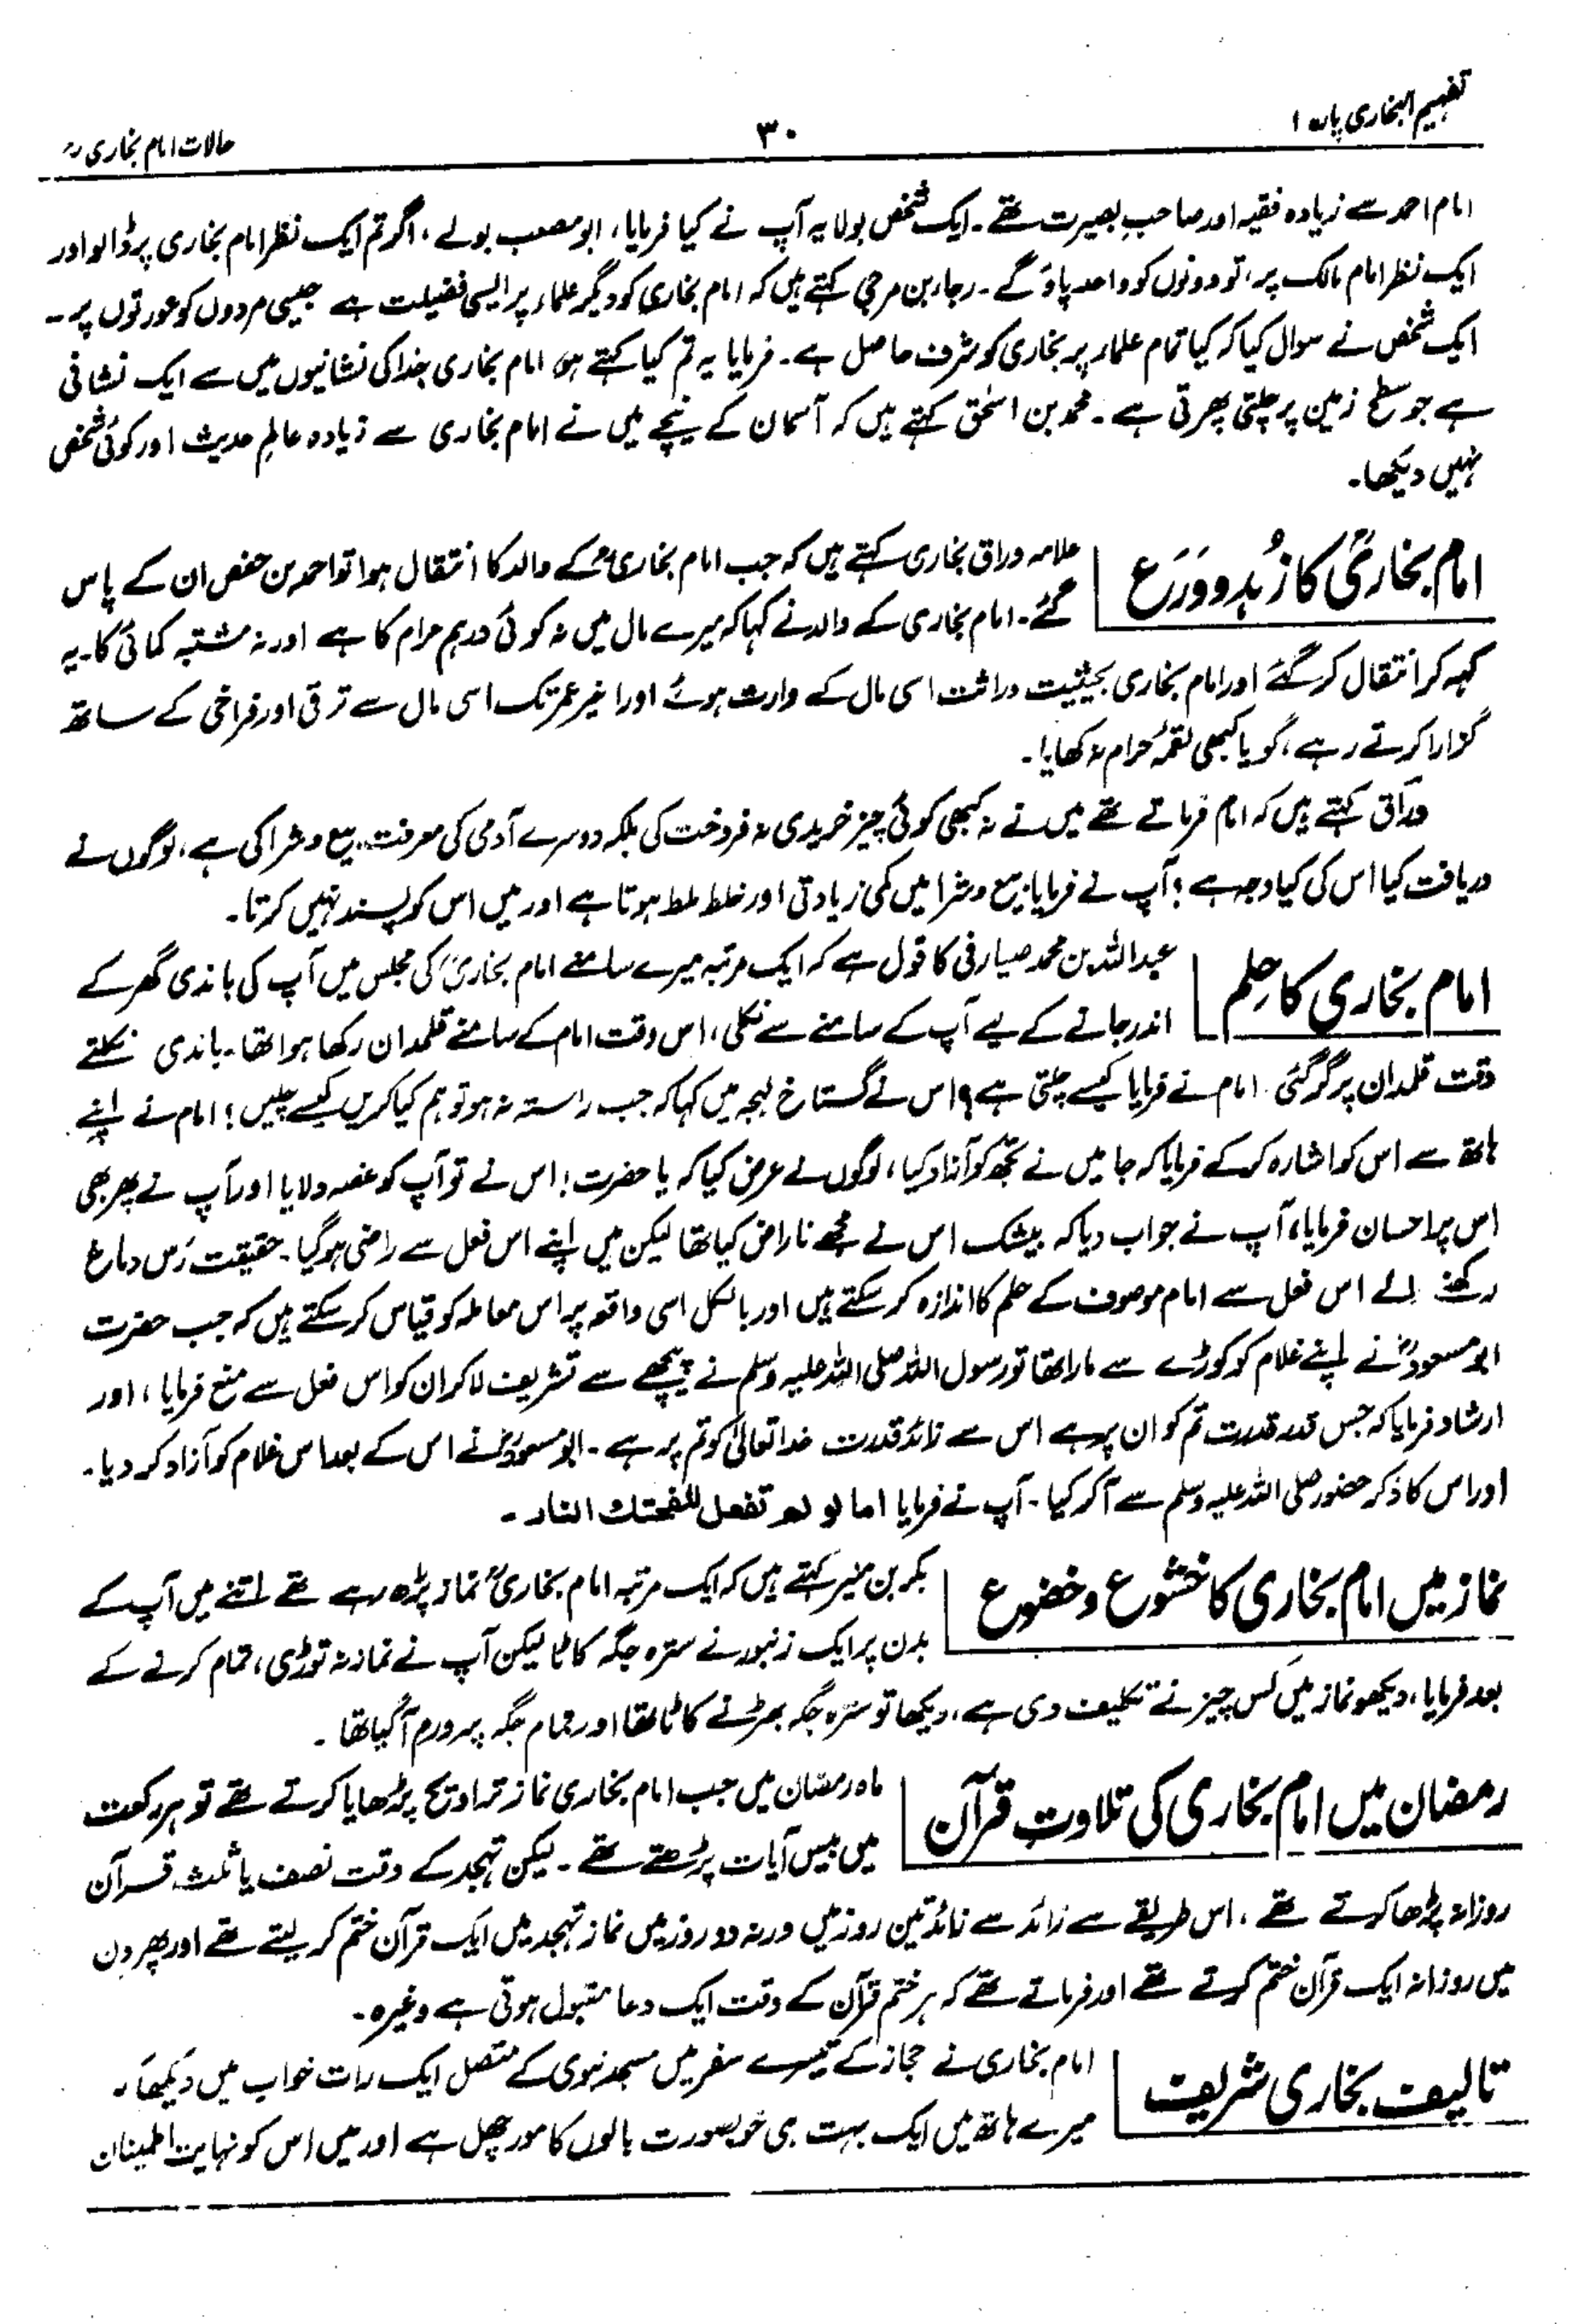 تفہیم البخاری پارہ ۱
۳۰
حالات امام بخاریؒ
امام احمد سے زیادہ فقیہ اور صاحبِ بصیرت تھے۔ ایک شخص بولا یہ آپ نے کیا فرمایا، ابو مصعب بولے، اگر تم ایک نظر امام بخاری پر ڈالو اور
ایک نظر امام مالک پر، تو دونوں کو واحد پاؤ گے۔ رجاء بن مرجی کہتے ہیں کہ امام بخاری کو دیگر علماء پر ایسی فضیلت ہے جیسی مردوں کو عورتوں پر۔
ایک شخص نے سوال کیا کہ کیا تمام علماء پر بخاری کو شرف حاصل ہے۔ فرمایا یہ تم کیا کہتے ہو امام بخاری خدا کی نشانیوں میں سے ایک نشانی
ہے جو سطح زمین پر چلتی پھرتی ہے۔ محمد بن اسحٰق کہتے ہیں کہ آسمان کے نیچے میں نے امام بخاری سے زیادہ عالمِ حدیث اور کوئی شخص
نہیں دیکھا۔
امام بخاریؒ کا زُہد و وَرَع
علامہ وراق بخاری کہتے ہیں کہ جب امام بخاریؒ کے والد کا انتقال ہوا تو احمد بن حفص ان کے پاس
گئے۔ امام بخاری کے والد نے کہا کہ میرے مال میں نہ کوئی درہم حرام کا ہے اور نہ مشتبہ کمائی کا۔ یہ
کہہ کر انتقال کر گئے اور امام بخاری بحیثیت وراثت اسی مال کے وارث ہوئے اور اخیر عمر تک اسی مال سے ترقی اور فراخی کے ساتھ
گزارا کرتے رہے، گویا کبھی لقمۂ حرام نہ کھایا۔
ورّاق کہتے ہیں کہ امام فرماتے تھے میں نے نہ کبھی کوئی چیز خریدی نہ فروخت کی بلکہ دوسرے آدمی کی معرفت بیع و شرا کی ہے، لوگوں نے
دریافت کیا اس کی کیا وجہ ہے؟ آپ نے فرمایا: بیع و شرا میں کمی زیادتی اور خلط ملط ہوتا ہے اور میں اس کو پسند نہیں کرتا۔
امام بخاری کا حِلم
عبداللہ بن محمد صیارفی کا قول ہے کہ ایک مرتبہ میرے سامنے امام بخاریؒ کی مجلس میں آپ کی باندی گھر کے
اندر جانے کے لیے آپ کے سامنے سے نکلی، اس وقت امام کے سامنے قلمدان رکھا ہوا تھا۔ باندی نکلتے
وقت قلمدان پر گر گئی۔ امام نے فرمایا کیسے چلتی ہے؟ اس نے گستاخ لہجہ میں کہا کہ جب راستہ نہ ہو تو ہم کیا کریں کیسے چلیں؛ امام نے اپنے
ہاتھ سے اس کو اشارہ کر کے فرمایا کہ جا میں نے تجھ کو آزاد کیا، لوگوں نے عرض کیا کہ یا حضرت! اس نے تو آپ کو غصہ دلایا اور آپ نے پھر بھی
اس پر احسان فرمایا، آپ نے جواب دیا کہ بیشک اس نے مجھے ناراض کیا تھا لیکن میں اپنے اس فعل سے راضی ہو گیا۔ حقیقت رَس دماغ
رکھنے والے اس فعل سے امام موصوف کے حلم کا اندازہ کر سکتے ہیں اور بالکل اسی واقعہ پر اس معاملہ کو قیاس کر سکتے ہیں کہ جب حضرت
ابو مسعودؓ نے اپنے غلام کو کوڑے سے مارا تھا تو رسول اللہ صلی اللہ علیہ وسلم نے پیچھے سے تشریف لا کر ان کو اس فعل سے منع فرمایا، اور
ارشاد فرمایا کہ جس قدر قدرت تم کو ان پر ہے اس سے زائد قدرت خدا تعالیٰ کو تم پر ہے۔ ابو مسعودؓ نے اس کے بعد اس غلام کو آزاد کر دیا۔
اور اس کا ذکر حضور صلی اللہ علیہ وسلم سے آکر کیا۔ آپ نے فرمایا اما لو لم تفعل للفحتك النار۔
نماز میں امام بخاری کا خشوع و خضوع
بکر بن منیر کہتے ہیں کہ ایک مرتبہ امام بخاریؒ نماز پڑھ رہے تھے اتنے میں آپ کے
بدن پر ایک زنبور نے سترہ جگہ کاٹا لیکن آپ نے نماز نہ توڑی، تمام کرنے کے
بعد فرمایا، دیکھو نماز میں کس چیز نے تکلیف دی ہے، دیکھا تو سترہ جگہ بھڑنے کاٹا تھا اور تمام جگہ پر ورم آگیا تھا۔
رمضان میں امام بخاری کی تلاوتِ قرآن
ماہ رمضان میں جب امام بخاری نماز تراویح پڑھایا کرتے تھے تو ہر رکعت
میں بیس آیات پڑھتے تھے۔ لیکن تہجد کے وقت نصف یا ثلث قرآن
روزانہ پڑھا کرتے تھے، اس طریقے سے زائد سے زائد تین روز میں ورنہ دو روز میں نماز تہجد میں ایک قرآن ختم کر لیتے تھے اور پھر دن
میں روزانہ ایک قرآن ختم کرتے تھے اور فرماتے تھے کہ ہر ختم قرآن کے وقت ایک دعا مقبول ہوتی ہے وغیرہ۔
تالیف بخاری شریف
امام بخاری نے حجاز کے تیسرے سفر میں مسجد نبوی کے متصل ایک رات خواب میں دیکھا کہ
میرے ہاتھ میں ایک بہت ہی خوبصورت بالوں کا مورچھل ہے اور میں اس کو نہایت اطمینان